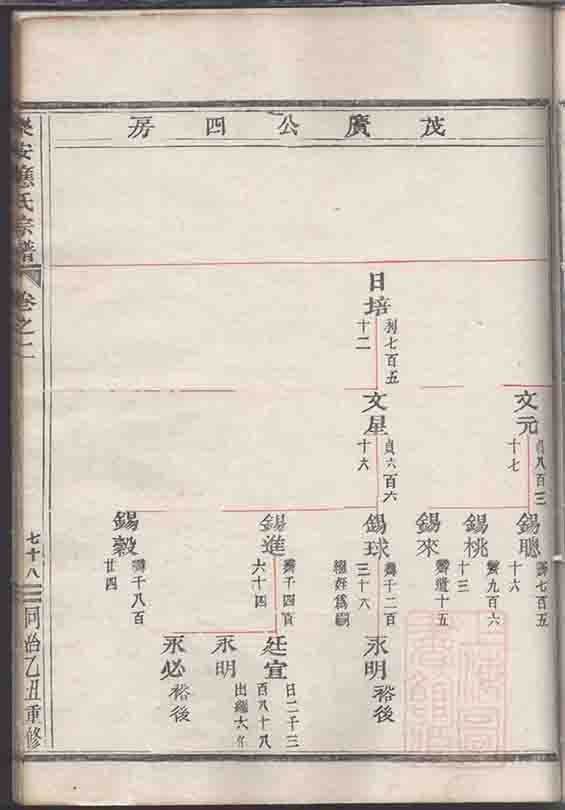 茂廣公四房
日培
利七百五
十二
文元
八百三
十七
文星
貞六百六
十六
錫聰
七百五
十六
錫桃
九百六
十三
錫來
十五
錫球
千二百
三十六
錫進
千四百
六十四
錫穀
千八百
廿四
永明
裕後
廷宣
日二千三
百八十八
永明
出繼大
永必
裕後
安應氏宗譜
卷之二
七十八
同治乙丑重修